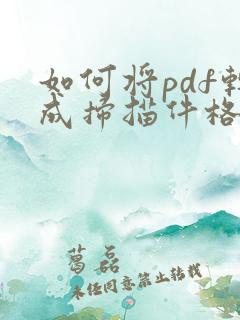 如何将pdf
成扫描件格
葛磊
未经同意禁止转载